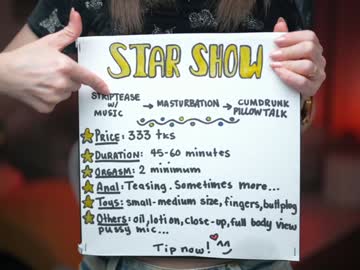 STAR SHOW
STRIPTEASE W/ MUSIC → MASTURBATION → CUMDRUNK PILLOWTALK
PRICE: 333 tks
DURATION: 45-60 minutes
ORGASM: 2 minimum
Anal: Teasing. Sometimes more...
Toys: small-medium size, fingers, buttplug
Others: oil, lotion, close-up, full body view
pussy mic...
Tip now!